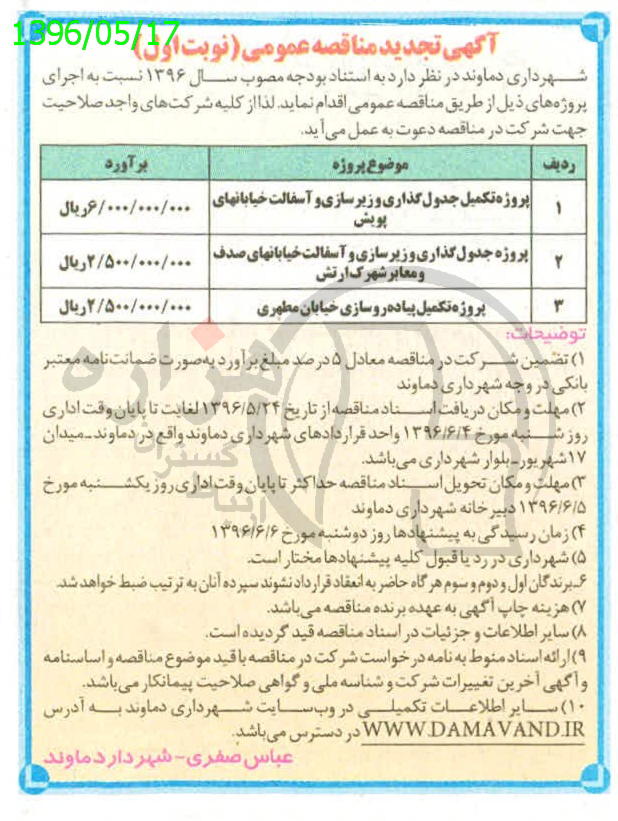 1396/05/17
آگهی تجدید مناقصه عمومی (نوبت اول)
شهرداری دماوند در نظر دارد به استناد بودجه مصوب سال ۱۳۹۶ نسبت به اجرای
پروژه‌های ذیل از طریق مناقصه عمومی اقدام نماید. لذا از کلیه شرکت‌های واجد صلاحیت
جهت شرکت در مناقصه دعوت به عمل می‌آید.
ردیف موضوع پروژه برآورد
۱ پروژه تکمیل جدول گذاری و زیرسازی و آسفالت خیابانهای پویش ۶/۰۰۰/۰۰۰/۰۰۰ ریال
۲ پروژه جدول گذاری و زیرسازی و آسفالت خیابانهای صدف و معابر شهرک ارتش ۲/۵۰۰/۰۰۰/۰۰۰ ریال
۳ پروژه تکمیل پیاده‌روسازی خیابان مطهری ۲/۵۰۰/۰۰۰/۰۰۰ ریال
توضیحات:
۱) تضمین شرکت در مناقصه معادل ۵ درصد مبلغ برآورد به‌صورت ضمانت‌نامه معتبر
بانکی در وجه شهرداری دماوند
۲) مهلت و مکان دریافت اسناد مناقصه از تاریخ ۱۳۹۶/۵/۲۴ لغایت تا پایان وقت اداری
روز شنبه مورخ ۱۳۹۶/۶/۴ واحد قراردادهای شهرداری دماوند واقع در دماوند ـ میدان
۱۷ شهریور ـ بلوار شهرداری می‌باشد.
۳) مهلت و مکان تحویل اسناد مناقصه حداکثر تا پایان وقت اداری روز یکشنبه مورخ
۱۳۹۶/۶/۵ دبیرخانه شهرداری دماوند
۴) زمان رسیدگی به پیشنهادها روز دوشنبه مورخ ۱۳۹۶/۶/۶
۵) شهرداری در رد یا قبول کلیه پیشنهادها مختار است.
۶ـ برندگان اول و دوم و سوم هرگاه حاضر به انعقاد قرارداد نشوند سپرده آنان به ترتیب ضبط خواهد شد.
۷) هزینه چاپ آگهی به عهده برنده مناقصه می‌باشد.
۸) سایر اطلاعات و جزئیات در اسناد مناقصه قید گردیده است.
۹) ارائه اسناد منوط به نامه درخواست شرکت در مناقصه با قید موضوع مناقصه و اساسنامه
و آگهی آخرین تغییرات شرکت و شناسه ملی و گواهی صلاحیت پیمانکار می‌باشد.
۱۰) سایر اطلاعات تکمیلی در وب‌سایت شهرداری دماوند به آدرس
WWW.DAMAVAND.IR در دسترس می‌باشد.
عباس صفری - شهردار دماوند